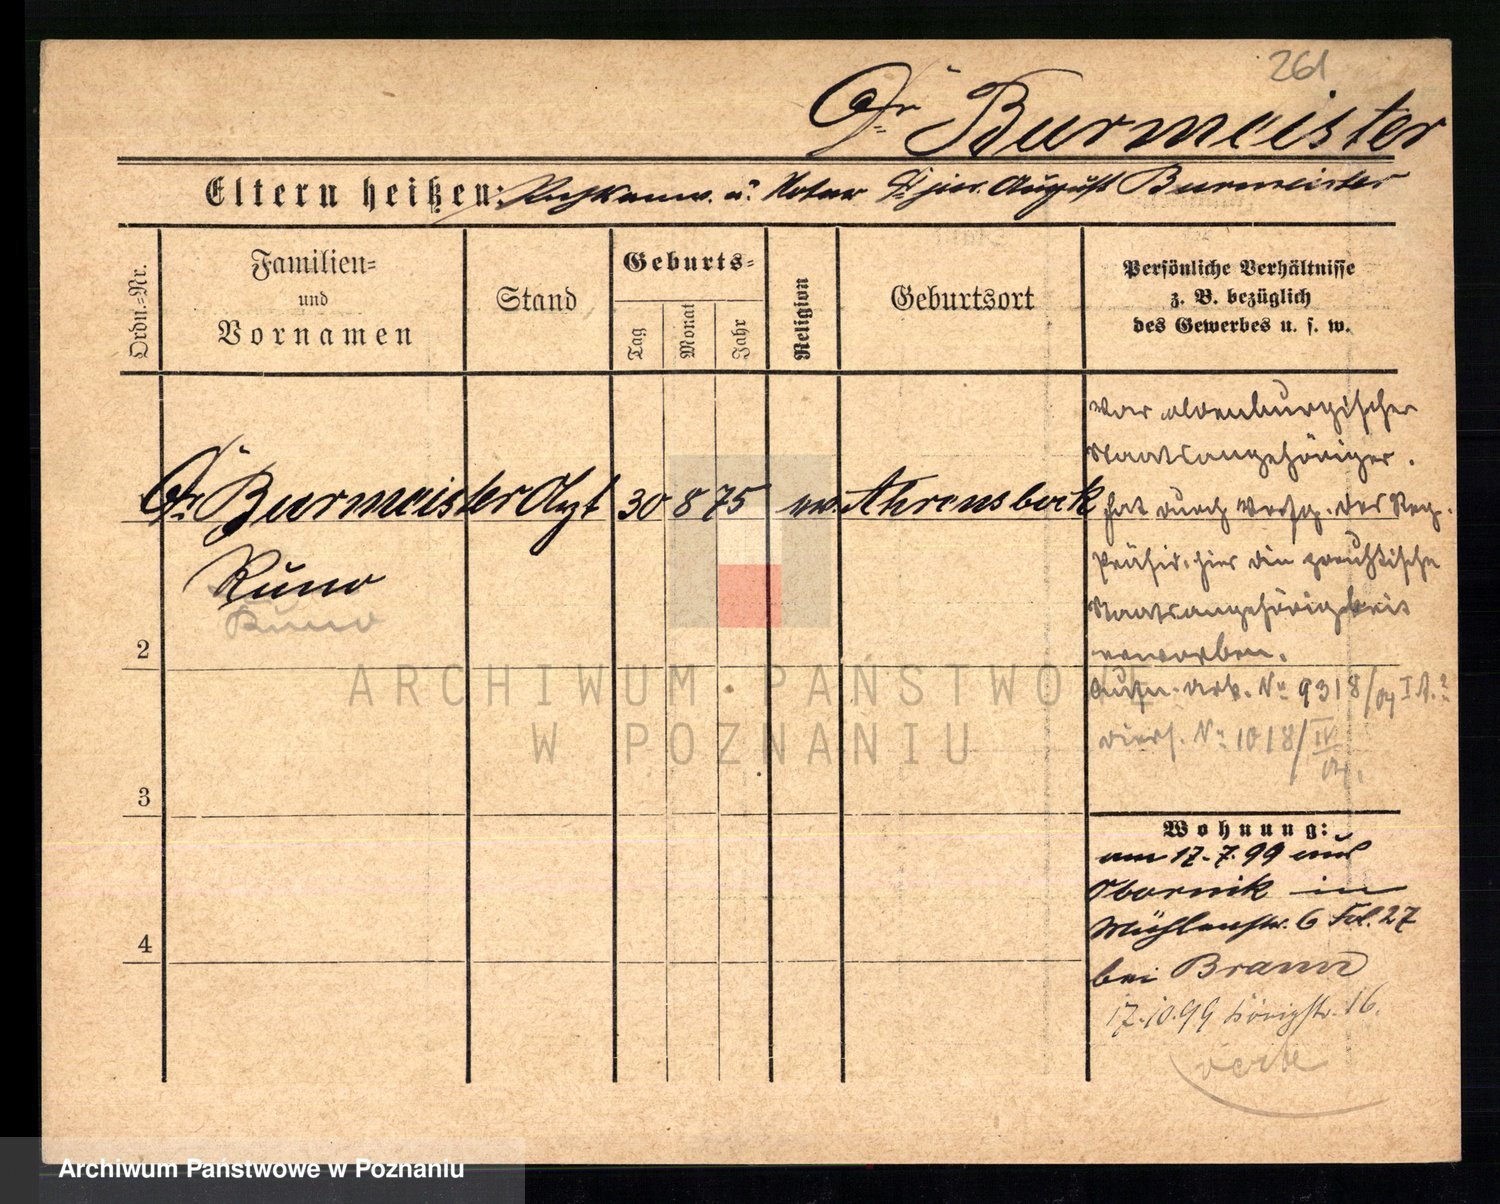 261
Dr Burmeister
Eltern heißen: Rechtsanw. u. Notar Dr jur. August Burmeister
Ordn.=Nr.
Familien=
und
Vornamen
Stand
Geburts=
Tag
Monat
Jahr
Religion
Geburtsort
Persönliche Verhältnisse
z. B. bezüglich
des Gewerbes u. s. w.
war oldenburgischer
Staatsangehöriger.
Dr. Burmeister Arzt 30 8 75 ev. Ahrensbock
hat durch Verfg. des Reg.
Kuno
Kuno
Präsid. hier die preußische
Staatsangehörigkeit
erworben.
2
Aufn. Urk. No 9318/04 I A.
diess. No 1018/IV
04.
3
Wohnung:
am 17.7.99 aus
Obornik in
Mühlenstr. 6 27
4
bei Brann
17.10.99 Königstr. 16.
ARCHIWUM PAŃSTWOWE
W POZNANIU
Archiwum Państwowe w Poznaniu